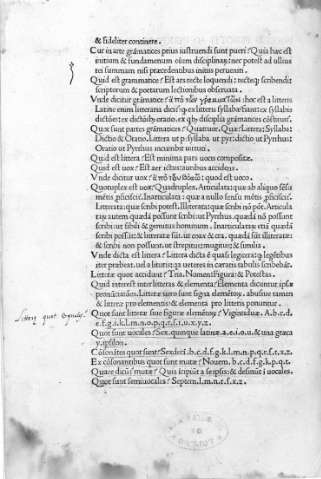 & fideliter continere.
Cur in arte grámatices prius instruendi sunt pueri? Quia hæc est
initium & fundamentum oĩum disciplinaꝝ: nec potest ad ullius
rei summam nisi præcedentibus initiis perueniri.
Quid est grammatice? Est ars recte loquendi: recteq; scribendi
scriptorum & poetarum lectionibus obseruata.
Vnde dicitur grámatice? hoc est a litteris
Latine enim litteraria dicit' ex litteris syllabæ
Quæ sunt partes grámatices? Quatuor. Quæ? Littera: Syllaba:
Dictio & Oratio. Littera ut p: syllaba ut pyr: dictio ut Pyrrhus:
Oratio ut Pyrrhus incumbit uirtuti.
Quid est littera? Est minima pars uocis compositæ.
Quid est uox? Est aer ictus: auribus accidens.
Vnde dicitur uox? quod est uoco.
Quotuplex est uox? Quadruplex. Articulata: quæ ab aliquo sésu
métis pficiscit'. Inarticulata: quæ a nullo sensu métis pficiscit'.
Litterata: quæ scribi potest. Illitterata: quæ scribi nó pót. Articula
taꝝ autem quædá possunt scribi: ut Pyrrhus. quædá nó possunt
scribi: ut sibili & gemitus hominum. Inarticulataꝝ etiá quædá
scribi possút: & litteratæ
& scribi non possunt. ut strepitus: mugitus: & similia.
Vnde dicta est littera? Littera dicta é quasi legitera: q legétibus
iter præbeat. uel a lituris: quia ueteres in cæratis tabulis scribebát.
Litteræ quot accidunt? Tria. Nomen: Figura: & Potestas.
Quid interest inter litteras & elementa? Elementa dicuntur ipsæ
pronútiationes. Litteræ uero sunt signa elemétoꝝ. abusiue tamen
& litteræ pro elementis & elementa pro litteris ponuntur.
Quot sunt litteræ siue figuræ elemétoꝝ? Vigintiduæ. A.b.c.d.
e.f.g.i.k.l.m.n.o.p.q.r.s.t.u.x.y.z.
Quot sunt uocales? Sex. quinque latinæ. a.e.i.o.u. & una græca
y. ypsilon.
Cósonátes quot sunt? Sexdeci. b.c.d.f.g.k.l.m.n.p.q.r.s.t.x.z.
Ex cósonantibus quot sunt mutæ? Nouem. b.c.d.f.g.k.p.q.t.
Quare dicút' mutæ? Quia incipiút a seipsis: & desinút i uocales.
Quot sunt semiuocales? Septem. l.m.n.r.s.x.z.